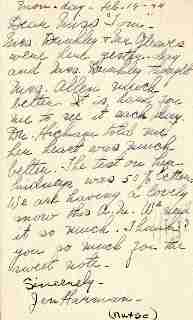 Mon-day - Feb. 14 - 44
Dear Miss "Tomi" -
Mrs. Brinkley & Mr. Gleaves
were here yesterday
and Mrs. Brinkley thought
Mrs. Allen much
better. It is hard for
me to see it each day.
Dr. Archer told me
her heart was much
better. The test on her
kidneys was 50% better.
We are having a lovely
snow this A.M. We need
it so much. Thank
you so much for the
sweet note.
Sincerely -
Jen Harman -
(Nurse)